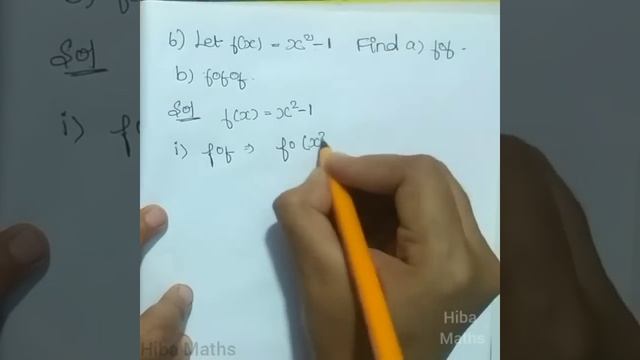 6) Let f(x) = x²-1 Find a) fof.
b) fofof.
Sol f(x) = x²-1
i) fof ⇒ fo (x²
Hiba Maths
Hiba Maths